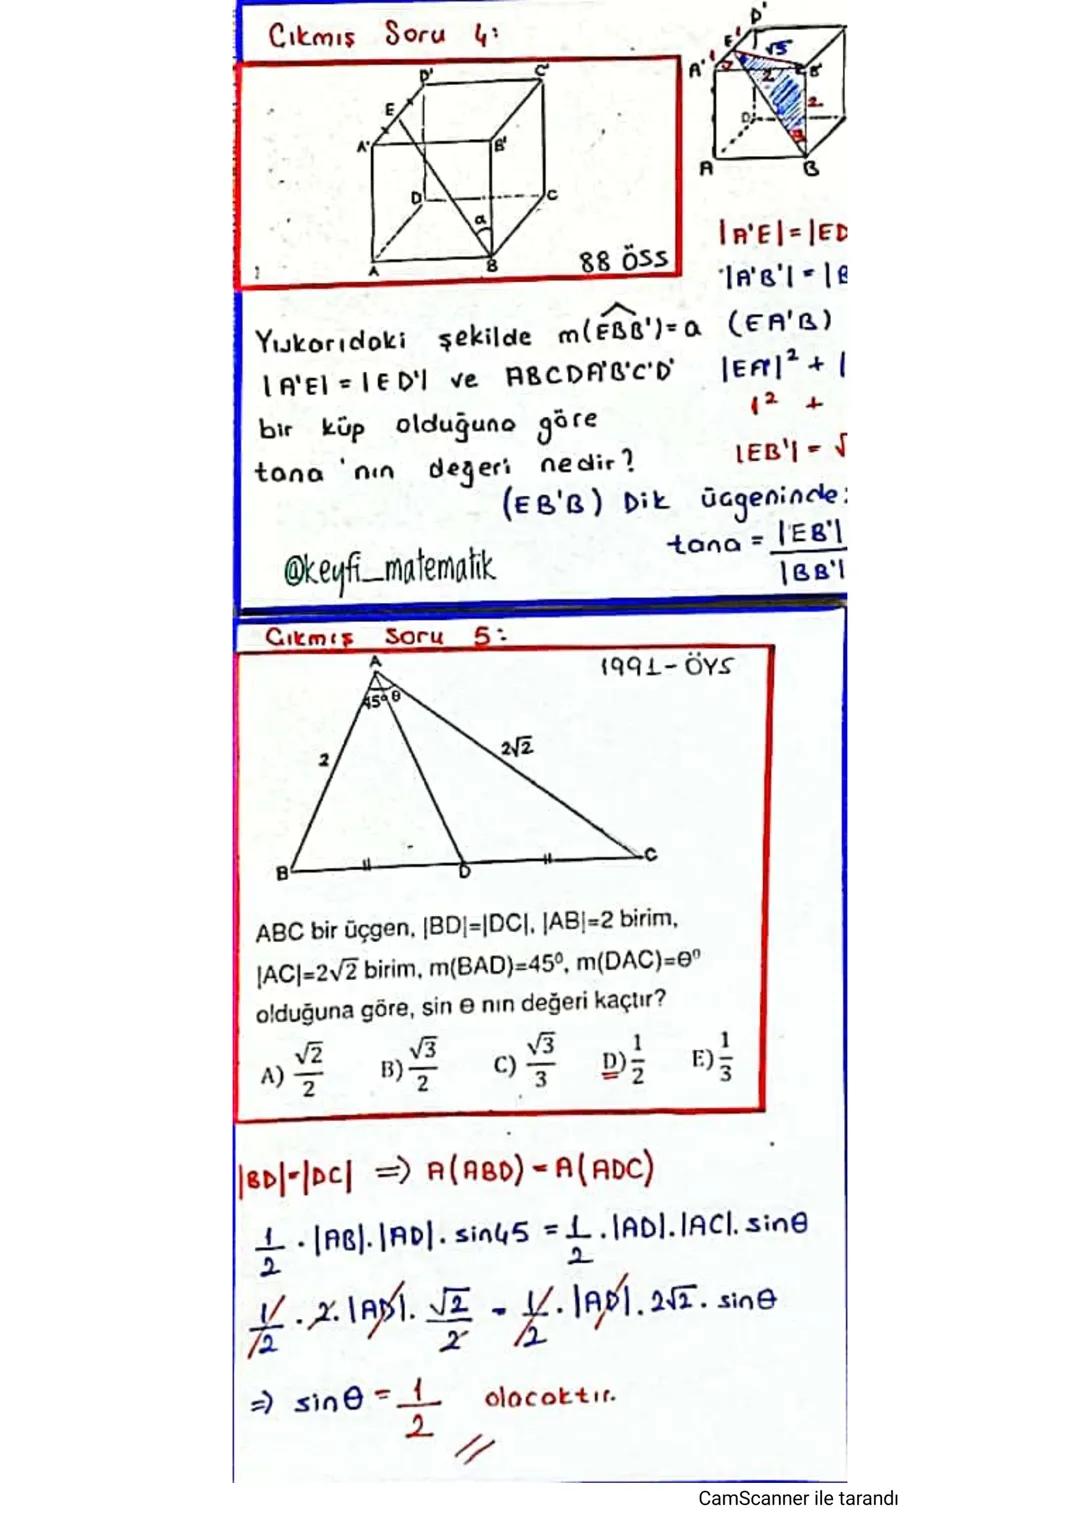 Çıkmış Soru 4:
D'
C'
E
A'
B'
D
C
α
A
B
88 ÖSS
D'
E'
√5
A'
B'
2
2
D
A
B
|A'E|=|ED
|A'B'|=|B
Yukarıdaki şekilde m(EBB')=a
(EA'B)
|A'E|=|ED'| ve ABCDA'B'C'D'
|EA'|² + |
bir küp olduğuna göre
1² +
tana 'nın değeri nedir?
|EB'| = √
(EB'B) Dik üçgeninde:
tana = |EB'|
|BB'|
@keyfi_matematik
Çıkmış Soru 5:
1991-ÖYS
A
45° θ
2
2√2
B
D
C
ABC bir üçgen, |BD|=|DC|, |AB|=2 birim,
|AC|=2√2 birim, m(BAD)=45⁰, m(DAC)=θ⁰
olduğuna göre, sin θ nın değeri kaçtır?
A) √2/2 B) √3/2 C) √3/3 D) 1/2 E) 1/3
|BD|=|DC| => A(ABD) = A(ADC)
1/2 . |AB|.|AD|. sin45 = 1/2 .|AD|.|AC|. sinθ
1/2 . 2.|AD|. √2/2 = 1/2 . |AD|. 2√2 . sinθ
=> sinθ = 1/2 olacaktır.
CamScanner ile tarandı